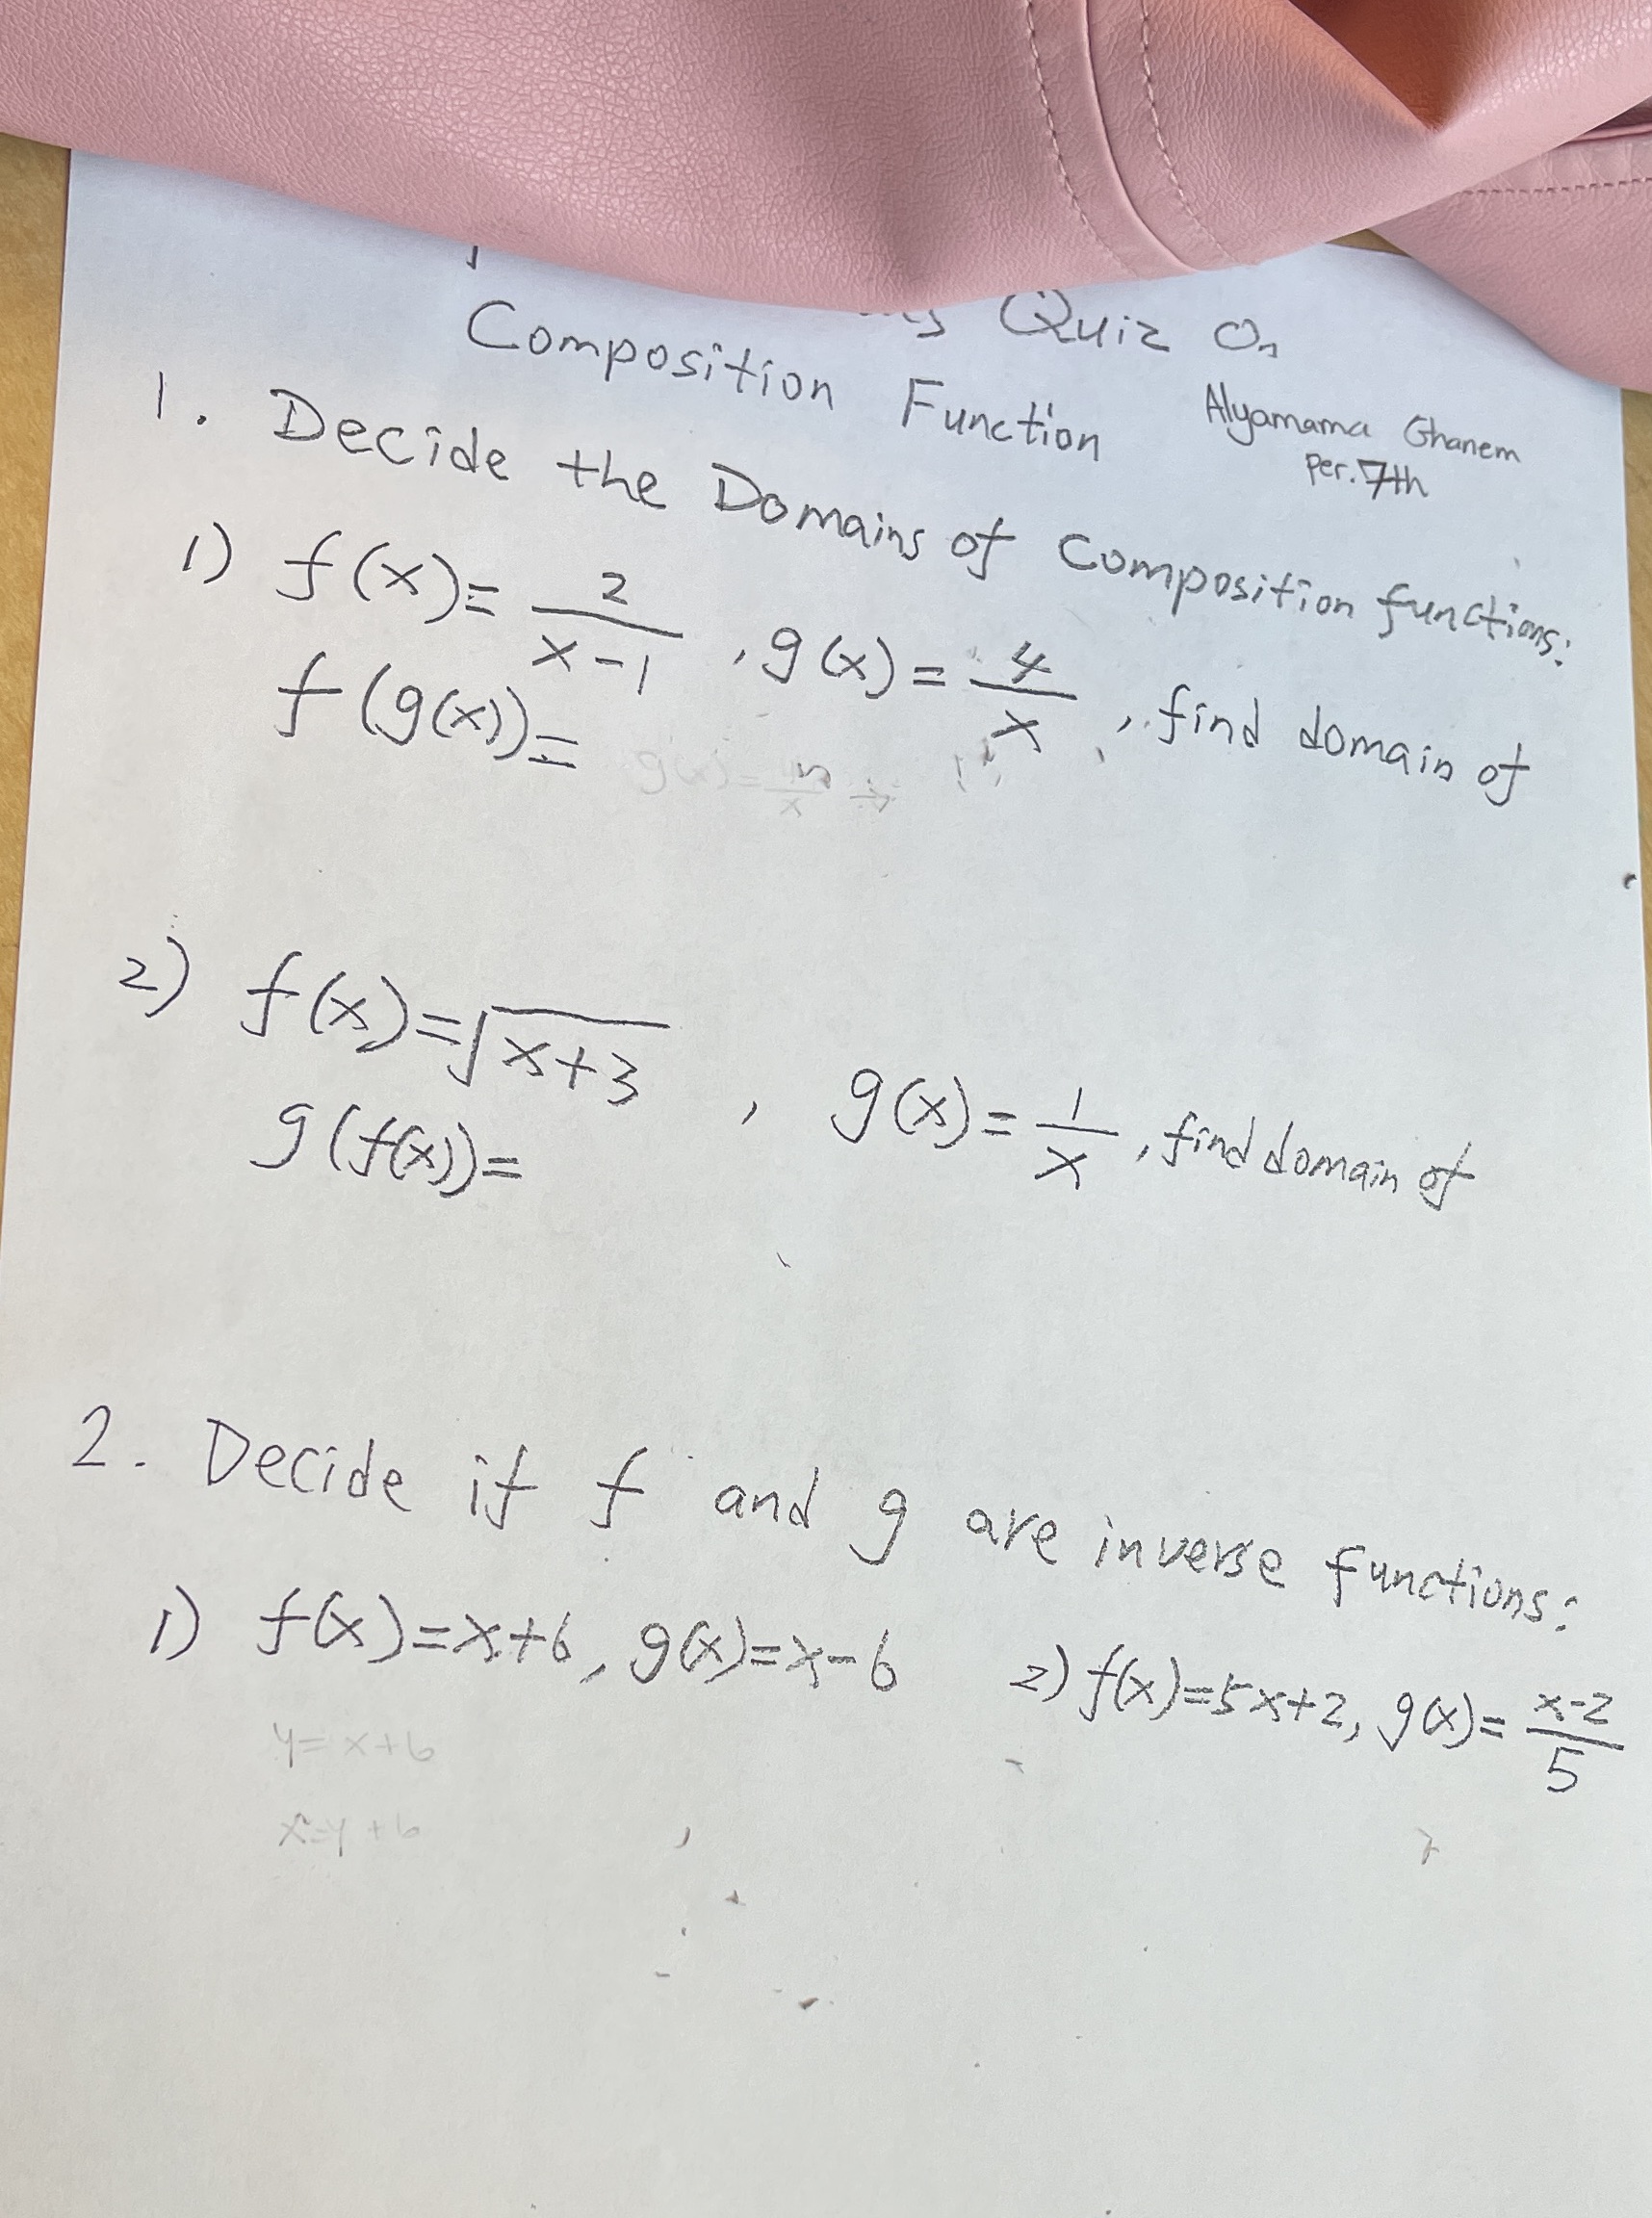 Quiz On
Composition Function
Alyamama Ghanem
Per. 7th
1. Decide the Domains of Composition functions:
1) f(x)= 2/(x-1), g(x)= 4/x, find domain of
f(g(x))=
g(x)=
2) f(x)=√(x+3), g(x)= 1/x, find domain of
g(f(x))=
2. Decide if f and g are inverse functions:
1) f(x)=x+6, g(x)=x-6
2) f(x)=5x+2, g(x)= (x-2)/5
y=x+6
x=y+6